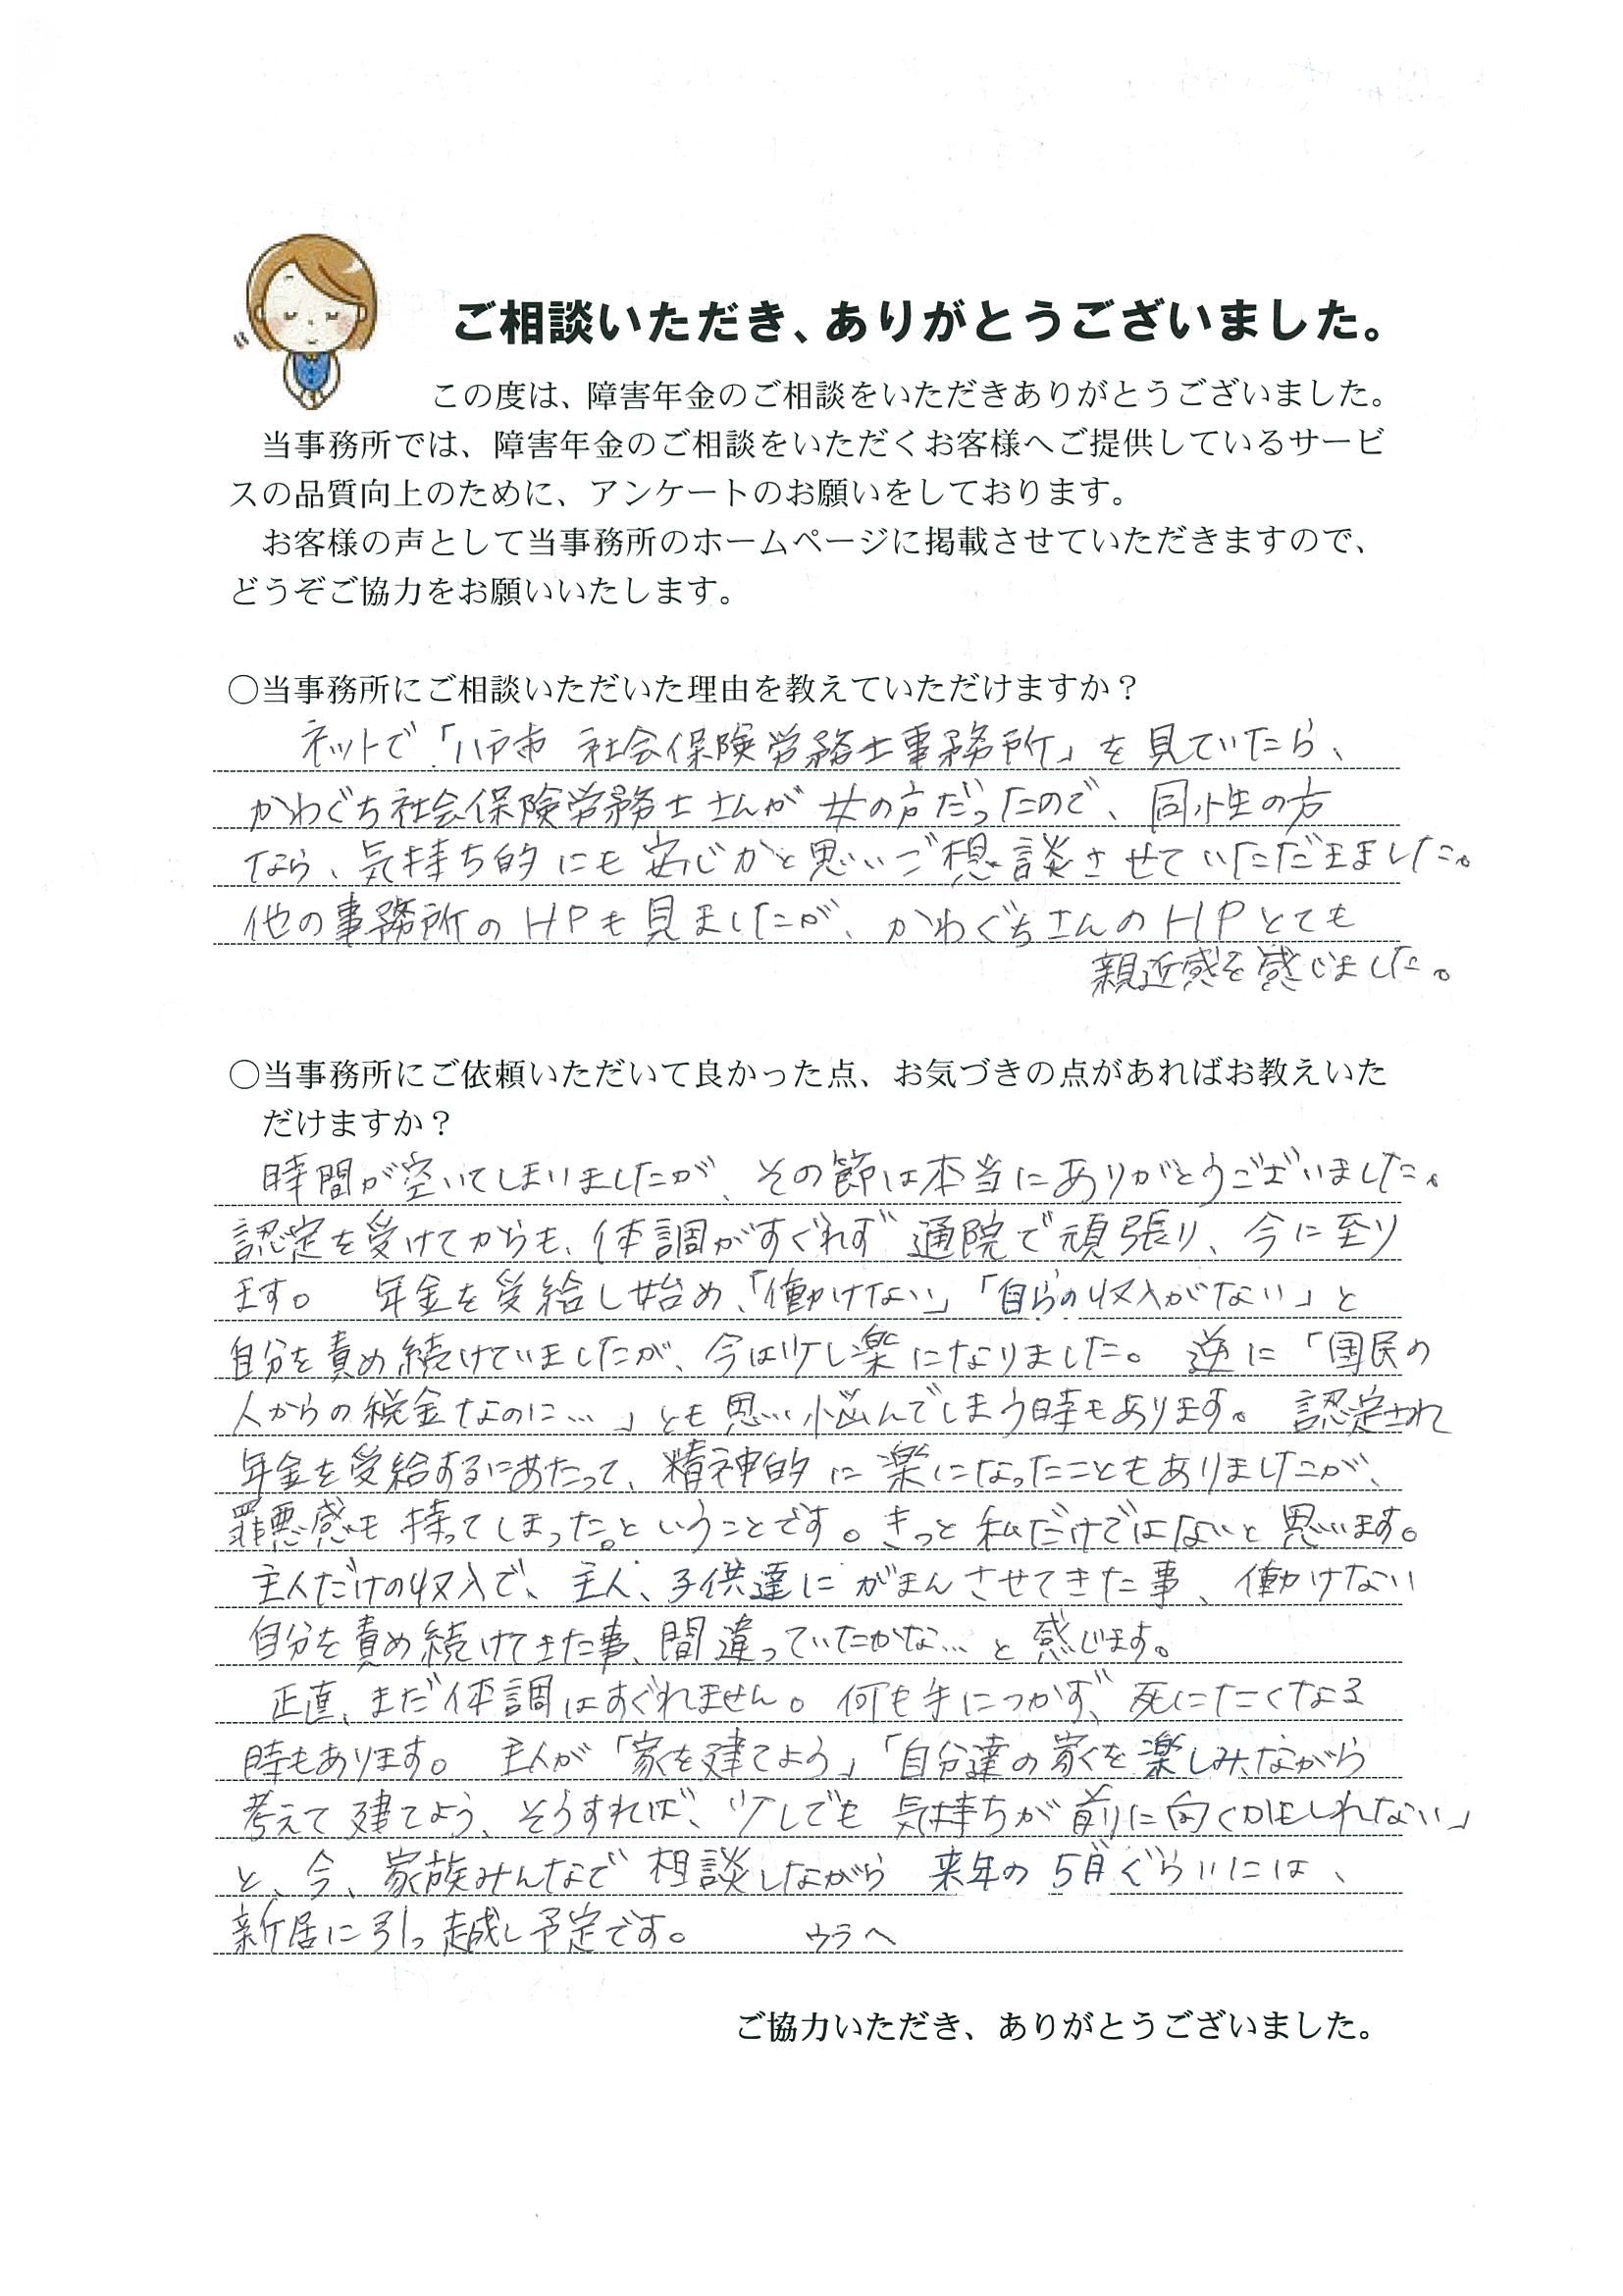 ご相談いただき、ありがとうございました。
この度は、障害年金のご相談をいただきありがとうございました。
当事務所では、障害年金のご相談をいただくお客様へご提供しているサービ
スの品質向上のために、アンケートのお願いをしております。
お客様の声として当事務所のホームページに掲載させていただきますので、
どうぞご協力をお願いいたします。
○当事務所にご相談いただいた理由を教えていただけますか？
ネットで「八戸市 社会保険労務士事務所」を見ていたら、
かわぐち社会保険労務士さんが女の方だったので、同性の方
なら、気持ち的にも安心かと思いご相談させていただきました。
他の事務所のHPも見ましたが、かわぐちさんのHPとても
親近感を感じました。
○当事務所にご依頼いただいて良かった点、お気づきの点があればお教えいた
だけますか？
時間が空いてしまいましたが、その節は本当にありがとうございました。
認定を受けてからも、体調がすぐれず通院で頑張り、今に至り
ます。 年金を受給し始め、「働けない」「自らの収入がない」と
自分を責め続けていましたが、今は少し楽になりました。 逆に「国民の
人からの税金なのに…」とも思い悩んでしまう時もあります。 認定され
年金を受給するにあたって、精神的に楽になったこともありましたが、
罪悪感も持ってしまった。ということです。きっと私だけではないと思います。
主人だけの収入で、主人、子供達にがまんさせてきた事、働けない
自分を責め続けてきた事、間違っていたかな…と感じます。
正直、まだ体調はすぐれません。何も手につかず、死にたくなる
時もあります。 主人が「家を建てよう」「自分達の家を楽しみながら
考えて建てよう、そうすれば、少しでも気持ちが前に向くかもしれない」
と、今、家族みんなで相談しながら来年の5月ぐらいには、
新居に引っ越し予定です。 ウラへ
ご協力いただき、ありがとうございました。